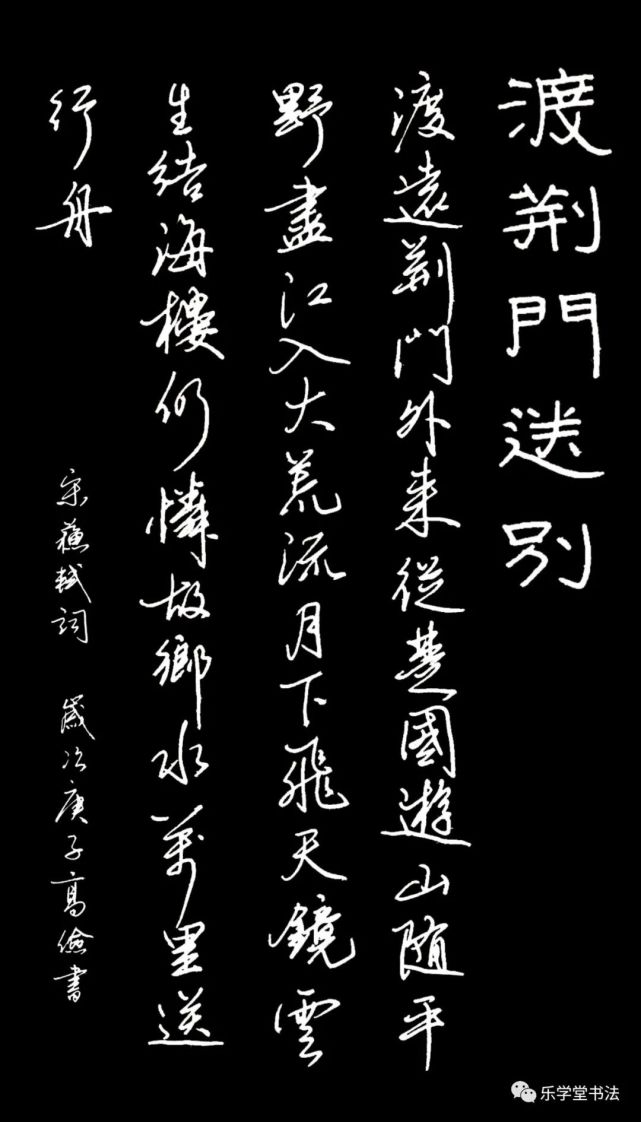 渡荊門送別
渡遠荊門外来從楚國遊山随平
野盡江入大荒流月下飛天鏡雲
生結海樓仍憐故鄉水萬里送
行舟
宋蘇軾詞 歲次庚子高儉書
乐学堂书法